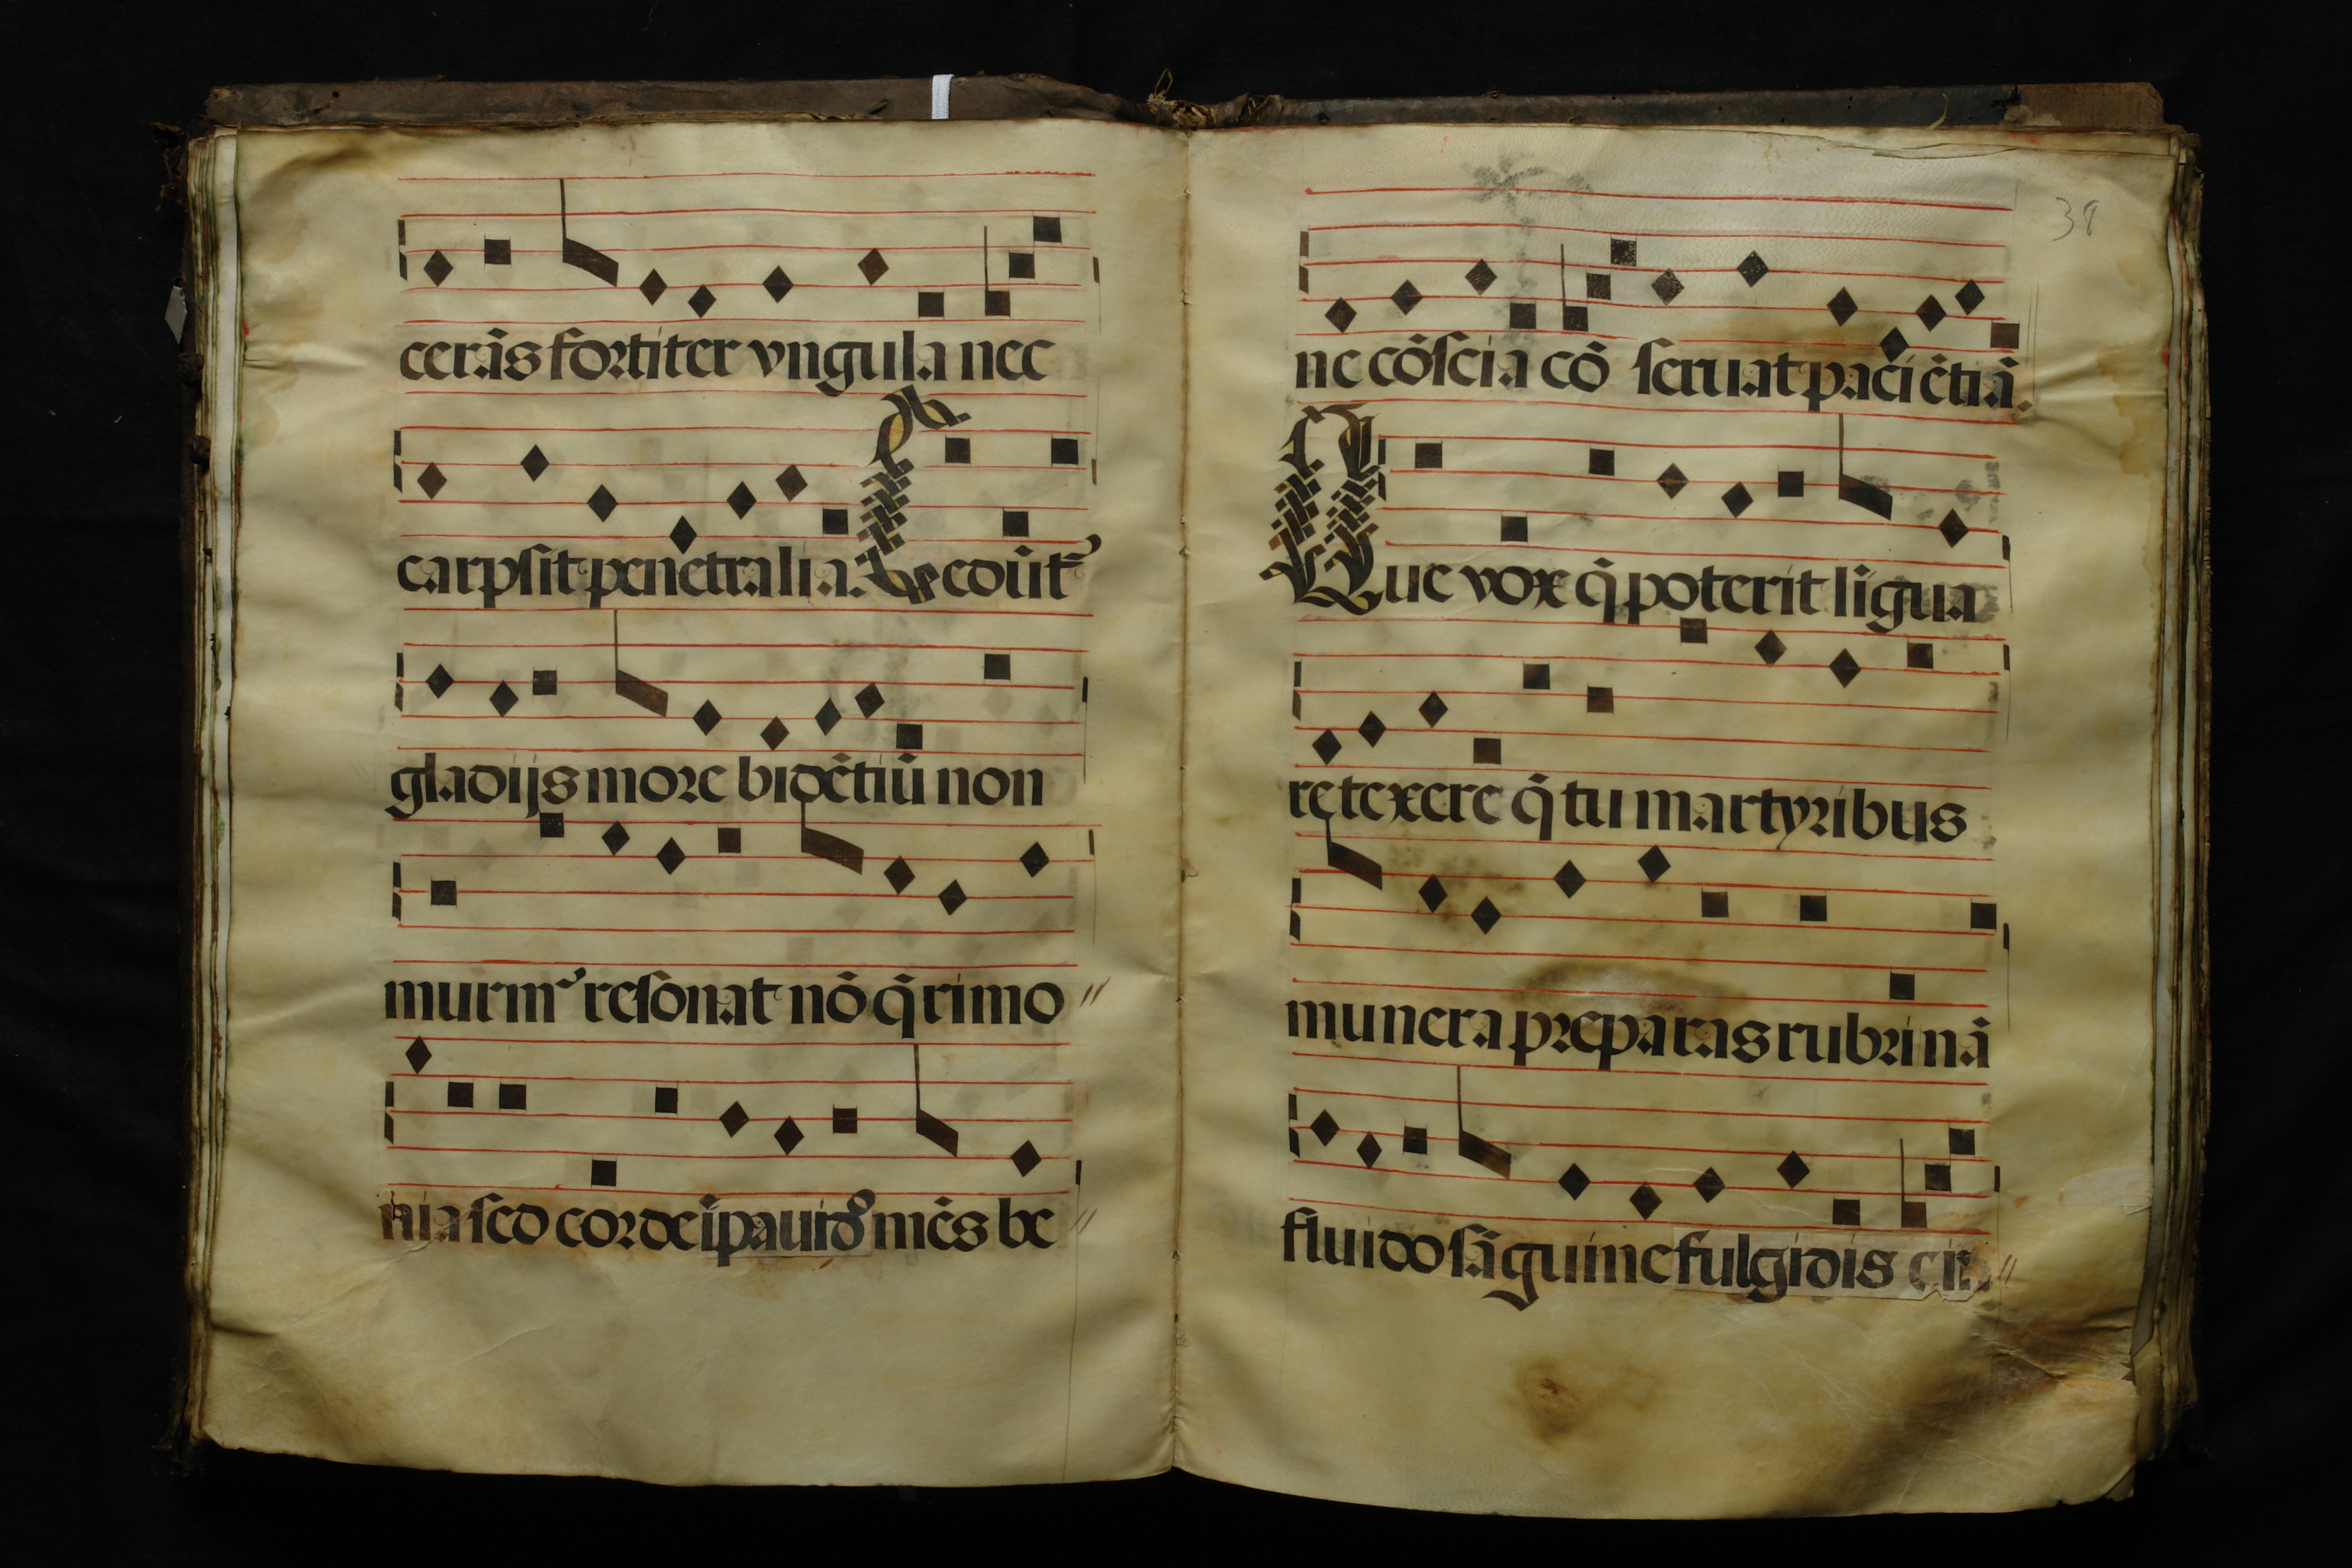 cerās fortiter vngula nec
carpsit penetralia. Cedūt᷑
gladijs more bidētiū non
murmꝰ resonat nō q̄rimo
nia sed corde īpauidꝰ mēs be
38
ne cōscia cō seruat paciētiā.
Que vox q̄ poterit līgua
retexere q̄ tu martyribus
munera preparas rubri nā
fluido sāguine fulgidis cin